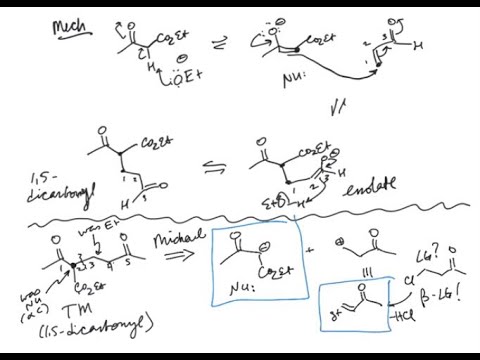 Mech
O
CO2Et
H
⊖:ÖEt
⇌
O⊖
CO2Et
Nu:
O
3
2
1
H
O
CO2Et
1 2
H 3
O
1,5-
dicarbonyl
⇌
O
CO2Et
O⊖
1 2 3
H
EtO H
enolate
was E+
O
1 2 3 4 5
O
CO2Et
was
Nu
(αC)
TM
(1,5-dicarbonyl)
Michael
O
⊖
CO2Et
Nu:
+
⊕
O
|||
δ+
O
-HCl
LG?
O
Cl
β-LG!